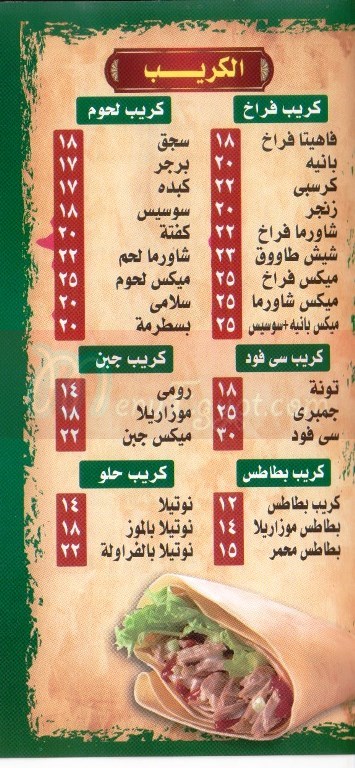 الكريب
كريب فراخ
فاهيتا فراخ ١٨
بانيه ٢٠
كرسبى ٢٢
زنجر ٢٠
شاورما فراخ ٢٢
شيش طاووق ٢٣
ميكس فراخ ٢٥
ميكس شاورما ٢٥
ميكس بانيه+سوسيس ٢٥
كريب لحوم
سجق ١٨
برجر ١٧
كبده ١٧
سوسيس ١٨
كفتة ٢٠
شاورما لحم ٢٢
ميكس لحوم ٢٥
سلامى ٢٠
بسطرمة ٢٠
كريب سى فود
تونة ١٨
جمبرى ٢٥
سى فود ٣٠
كريب جبن
رومى ١٤
موزاريلا ١٨
ميكس جبن ٢٢
كريب بطاطس
كريب بطاطس ١٢
بطاطس موزاريلا ١٤
بطاطس محمر ١٥
كريب حلو
نوتيلا ١٤
نوتيلا بالموز ١٨
نوتيلا بالفراولة ٢٢